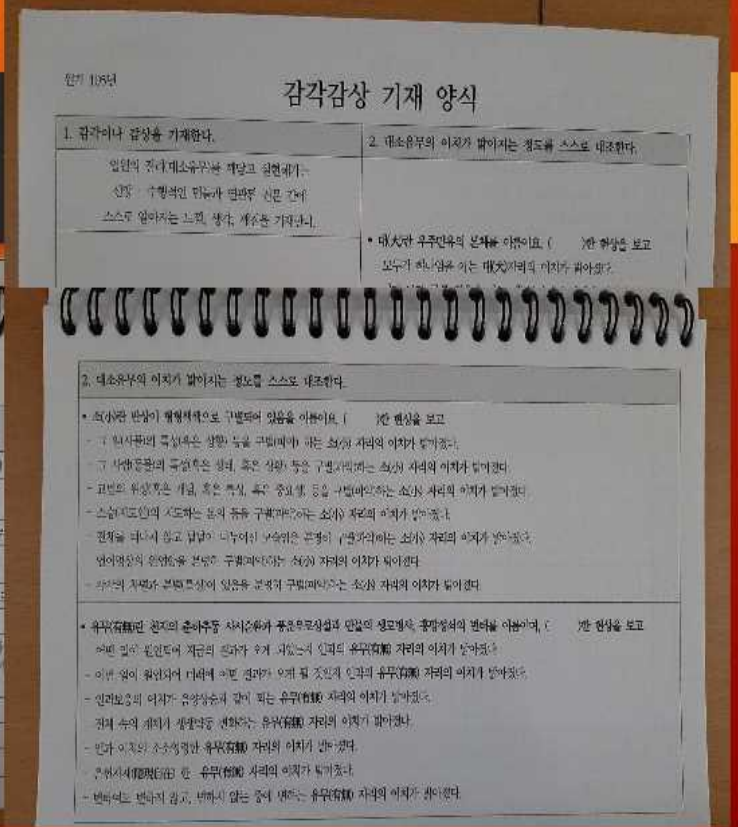 원기 105년
감각감상 기재 양식
1. 감각이나 감상을 기재한다.
2. 대소유무의 이치가 밝아지는 정도를 스스로 대조한다.
일원의 진리(대소유무)를 깨닫고 실현해가는
신앙 · 수행적인 만들과 연관된 가운데
스스로 알아지는 느낌, 생각, 깨침을 기재한다.
• 대(大)란 우주만유의 본체를 이름이요, ( )한 현상을 보고
모두가 하나임을 아는 대(大)자리의 이치가 밝아졌다.
2. 대소유무의 이치가 밝아지는 정도를 스스로 대조한다.
• 소(小)란 만상이 형형색색으로 구별되어 있음을 이름이요, ( )한 현상을 보고
- 그 일(사물)의 특성(혹은 상황) 등을 구별(파악) 하는 소(小) 자리의 이치가 밝아졌다.
- 그 사람(동물)의 특성(혹은 상태, 혹은 상황) 등을 구별(파악)하는 소(小) 자리의 이치가 밝아졌다.
- 교법의 위상(혹은 개념, 혹은 특성, 혹은 중요성) 등을 구별(파악)하는 소(小) 자리의 이치가 밝아졌다.
- 스승(지도인)의 지도하는 본의 등을 구별(파악)하는 소(小) 자리의 이치가 밝아졌다.
- 전체를 떠나지 않고 낱낱이 나누어진 모습임을 분명히 구별(파악)하는 소(小) 자리의 이치가 밝아졌다.
- 언어명상이 완연함을 분명히 구별(파악)하는 소(小) 자리의 이치가 밝아졌다.
- 각각의 차별과 분별(특성)이 있음을 분명히 구별(파악)하는 소(小) 자리의 이치가 밝아졌다.
• 유무(有無)란 천지의 춘하추동 사시순환과 풍운우로상설과 만물의 생로병사, 흥망성쇠의 변태를 이름이며, ( )한 현상을 보고
- 어떤 일이 원인되어 지금의 결과가 오게 되었는지 인과의 유무(有無) 자리의 이치가 밝아졌다.
- 이번 일이 원인되어 미래에 어떤 결과가 오게 될 것인지 인과의 유무(有無) 자리의 이치가 밝아졌다.
- 인과보응의 이치가 음양상승과 같이 되는 유무(有無) 자리의 이치가 밝아졌다.
- 전체 속의 개체가 생생약동 변화하는 유무(有無) 자리의 이치가 밝아졌다.
- 인과 이치의 소소영령한 유무(有無) 자리의 이치가 밝아졌다.
- 은현자재(隱顯自在) 한 유무(有無) 자리의 이치가 밝아졌다.
- 변하여도 변하지 않고, 변하지 않는 중에 변하는 유무(有無) 자리의 이치가 밝아졌다.